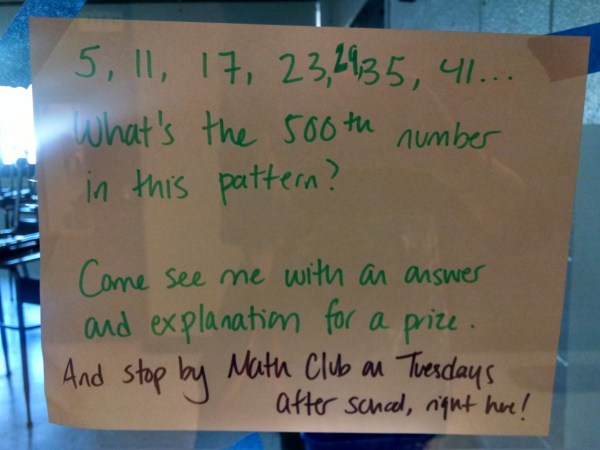 5, 11, 17, 23, 29, 35, 41...
What's the 500th number
in this pattern?
Come see me with an answer
and explanation for a prize.
And stop by Math Club on Tuesdays
after school, right here!